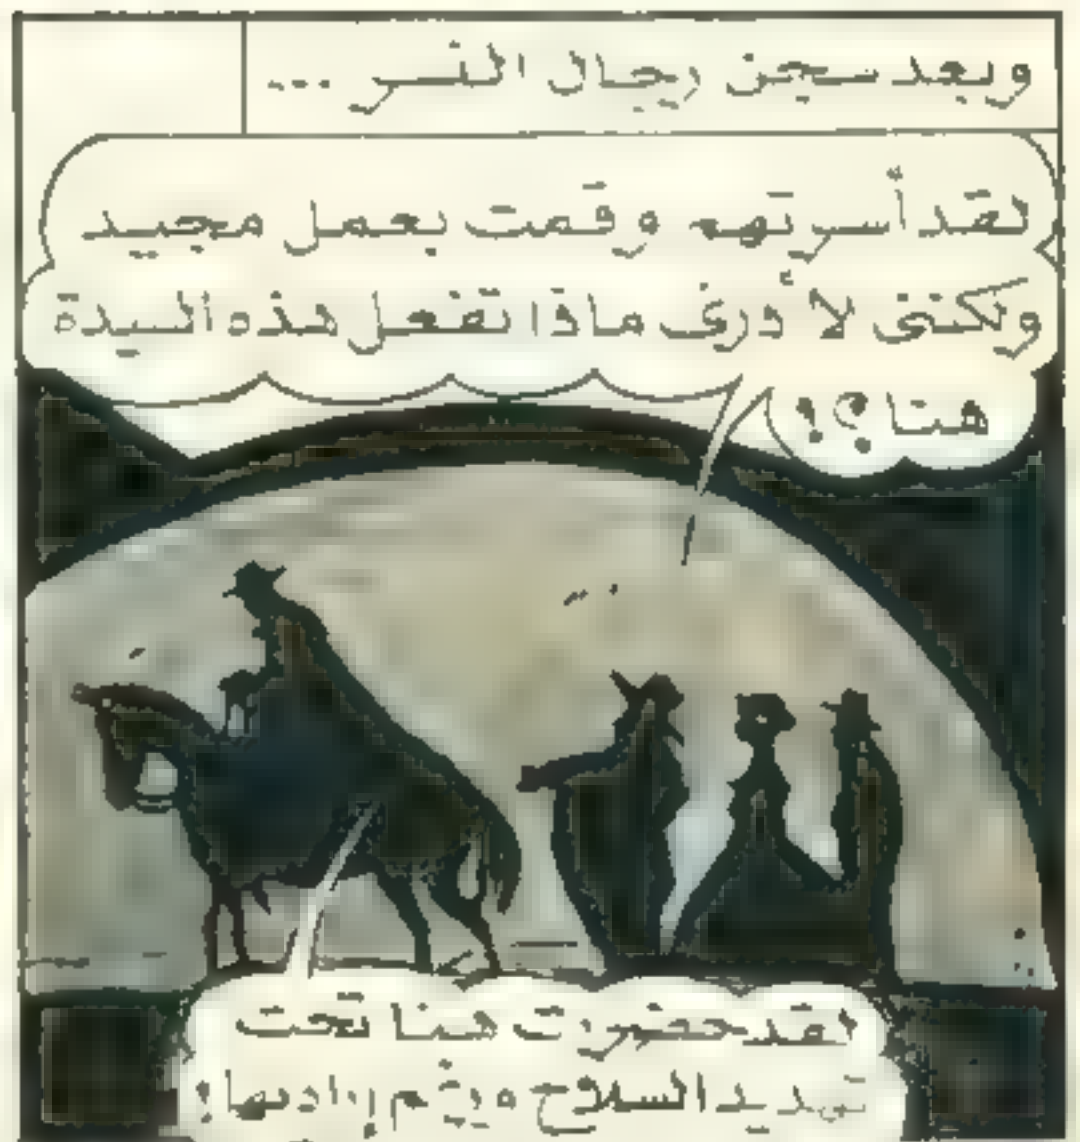 وبعد سجن رجال النسر ...
لقد أسرتهم وقمت بعمل مجيد
ولكننى لا أدرى ماذا تفعل هذه السيدة
هنا ؟!
لقد حضرت هنا تحت
تهديد السلاح ورغم إرادتها !